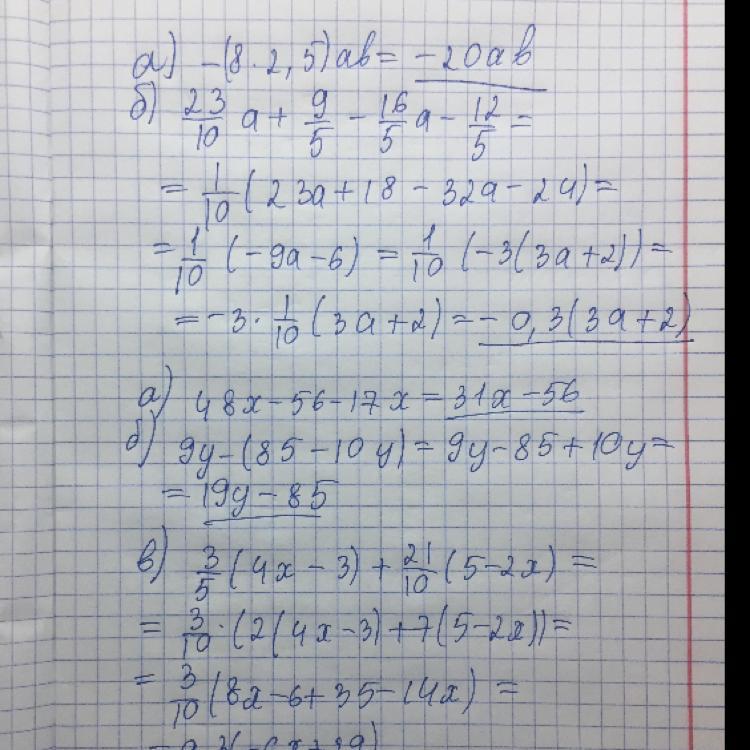 а) -(8·2,5)ab = -20ab
б) 23/10 a + 9/5 - 16/5 a - 12/5 =
= 1/10 (23a + 18 - 32a - 24) =
= 1/10 (-9a - 6) = 1/10 (-3(3a + 2)) =
= -3 · 1/10 (3a + 2) = -0,3(3a + 2)
а) 48x - 56 - 17x = 31x - 56
б) 9y - (85 - 10y) = 9y - 85 + 10y =
= 19y - 85
в) 3/5 (4x - 3) + 21/10 (5 - 2x) =
= 3/10 · (2(4x - 3) + 7(5 - 2x)) =
= 3/10 (8x - 6 + 35 - 14x) =